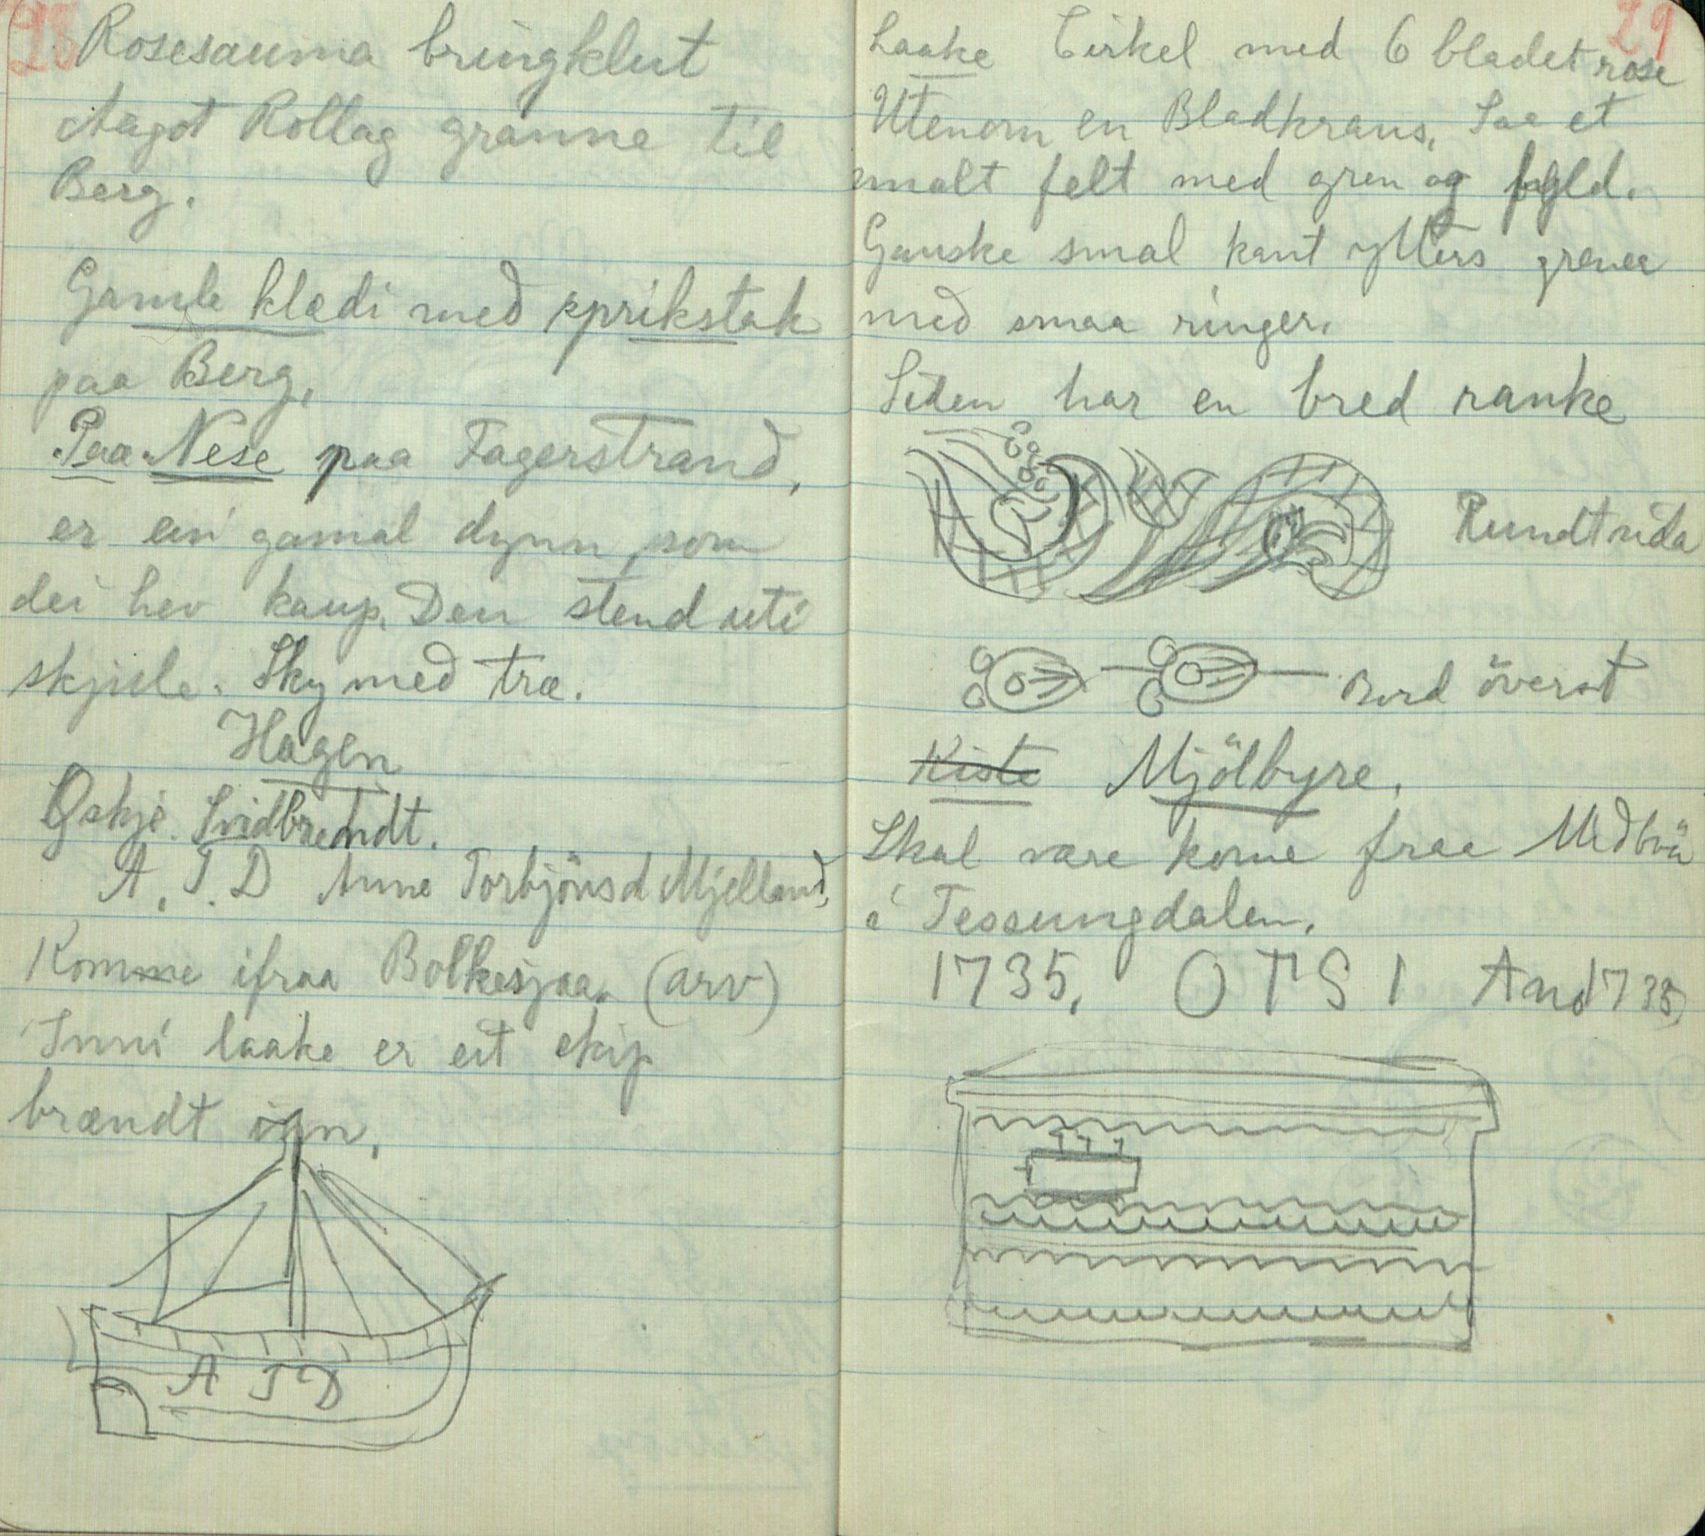 28
Rosesauma bringklut
Aagot Rollag granne til
Berg.
Gamle klædi med sprikstak
paa Berg.
Paa Nese paa Fagerstrand,
er ein gamal dynn som
dei hev kaup. Den stend uti
skjule. Sky med træ.
Hagen
Øskje. Svidbrendt.
A. T. D Anne Torbjönsd Mjelland,
Komme ifraa Bolkesjaa. (arv)
Inni laake er eit skip
brændt inn.
A T D
29
Laake Cirkel med 6 bladet rose
Utenom en Bladkrans. Saa et
smalt felt med gren og
Ganske smal kant ytters grener
med smaa ringer.
Siden har en bred ranke
Rundt sida
Bord överst
Kiste Mjölbyre.
Skal være kome fraa
i Tessungdalen.
1735. O T S I Aand 1735